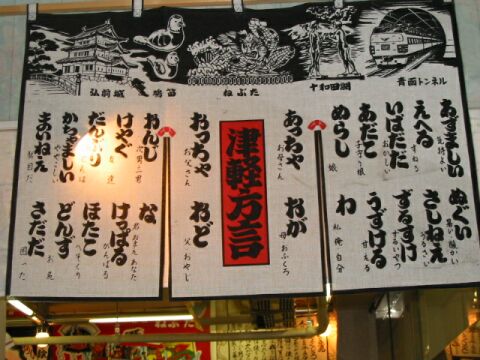 弘前城
鳩笛
ねぶた
十和田湖
青函トンネル
津軽方言
あずましい
気持よい
えへる
すねる
いぱだだ
おかしい
あだこ
子守り娘
めらし
娘
あっちゃ
お母さん
ぬくい
暖かい
さしねえ
うるさい
ずるすけ
ずるいやつ
うずける
甘える
わ
私 俺 自分
おか
母 おふくろ
おっちゃ
お父さん
おんじ
次男 三男
けやぐ
友達
だんぶり
とんぼ
かちゃましい
まいねえ
駄目だ
おど
父 おやじ
な
君 おまえ あなた
けっぱる
がんばる
ほたこ
へそくり
どんず
お尻
さだだ
困った
ねぶた